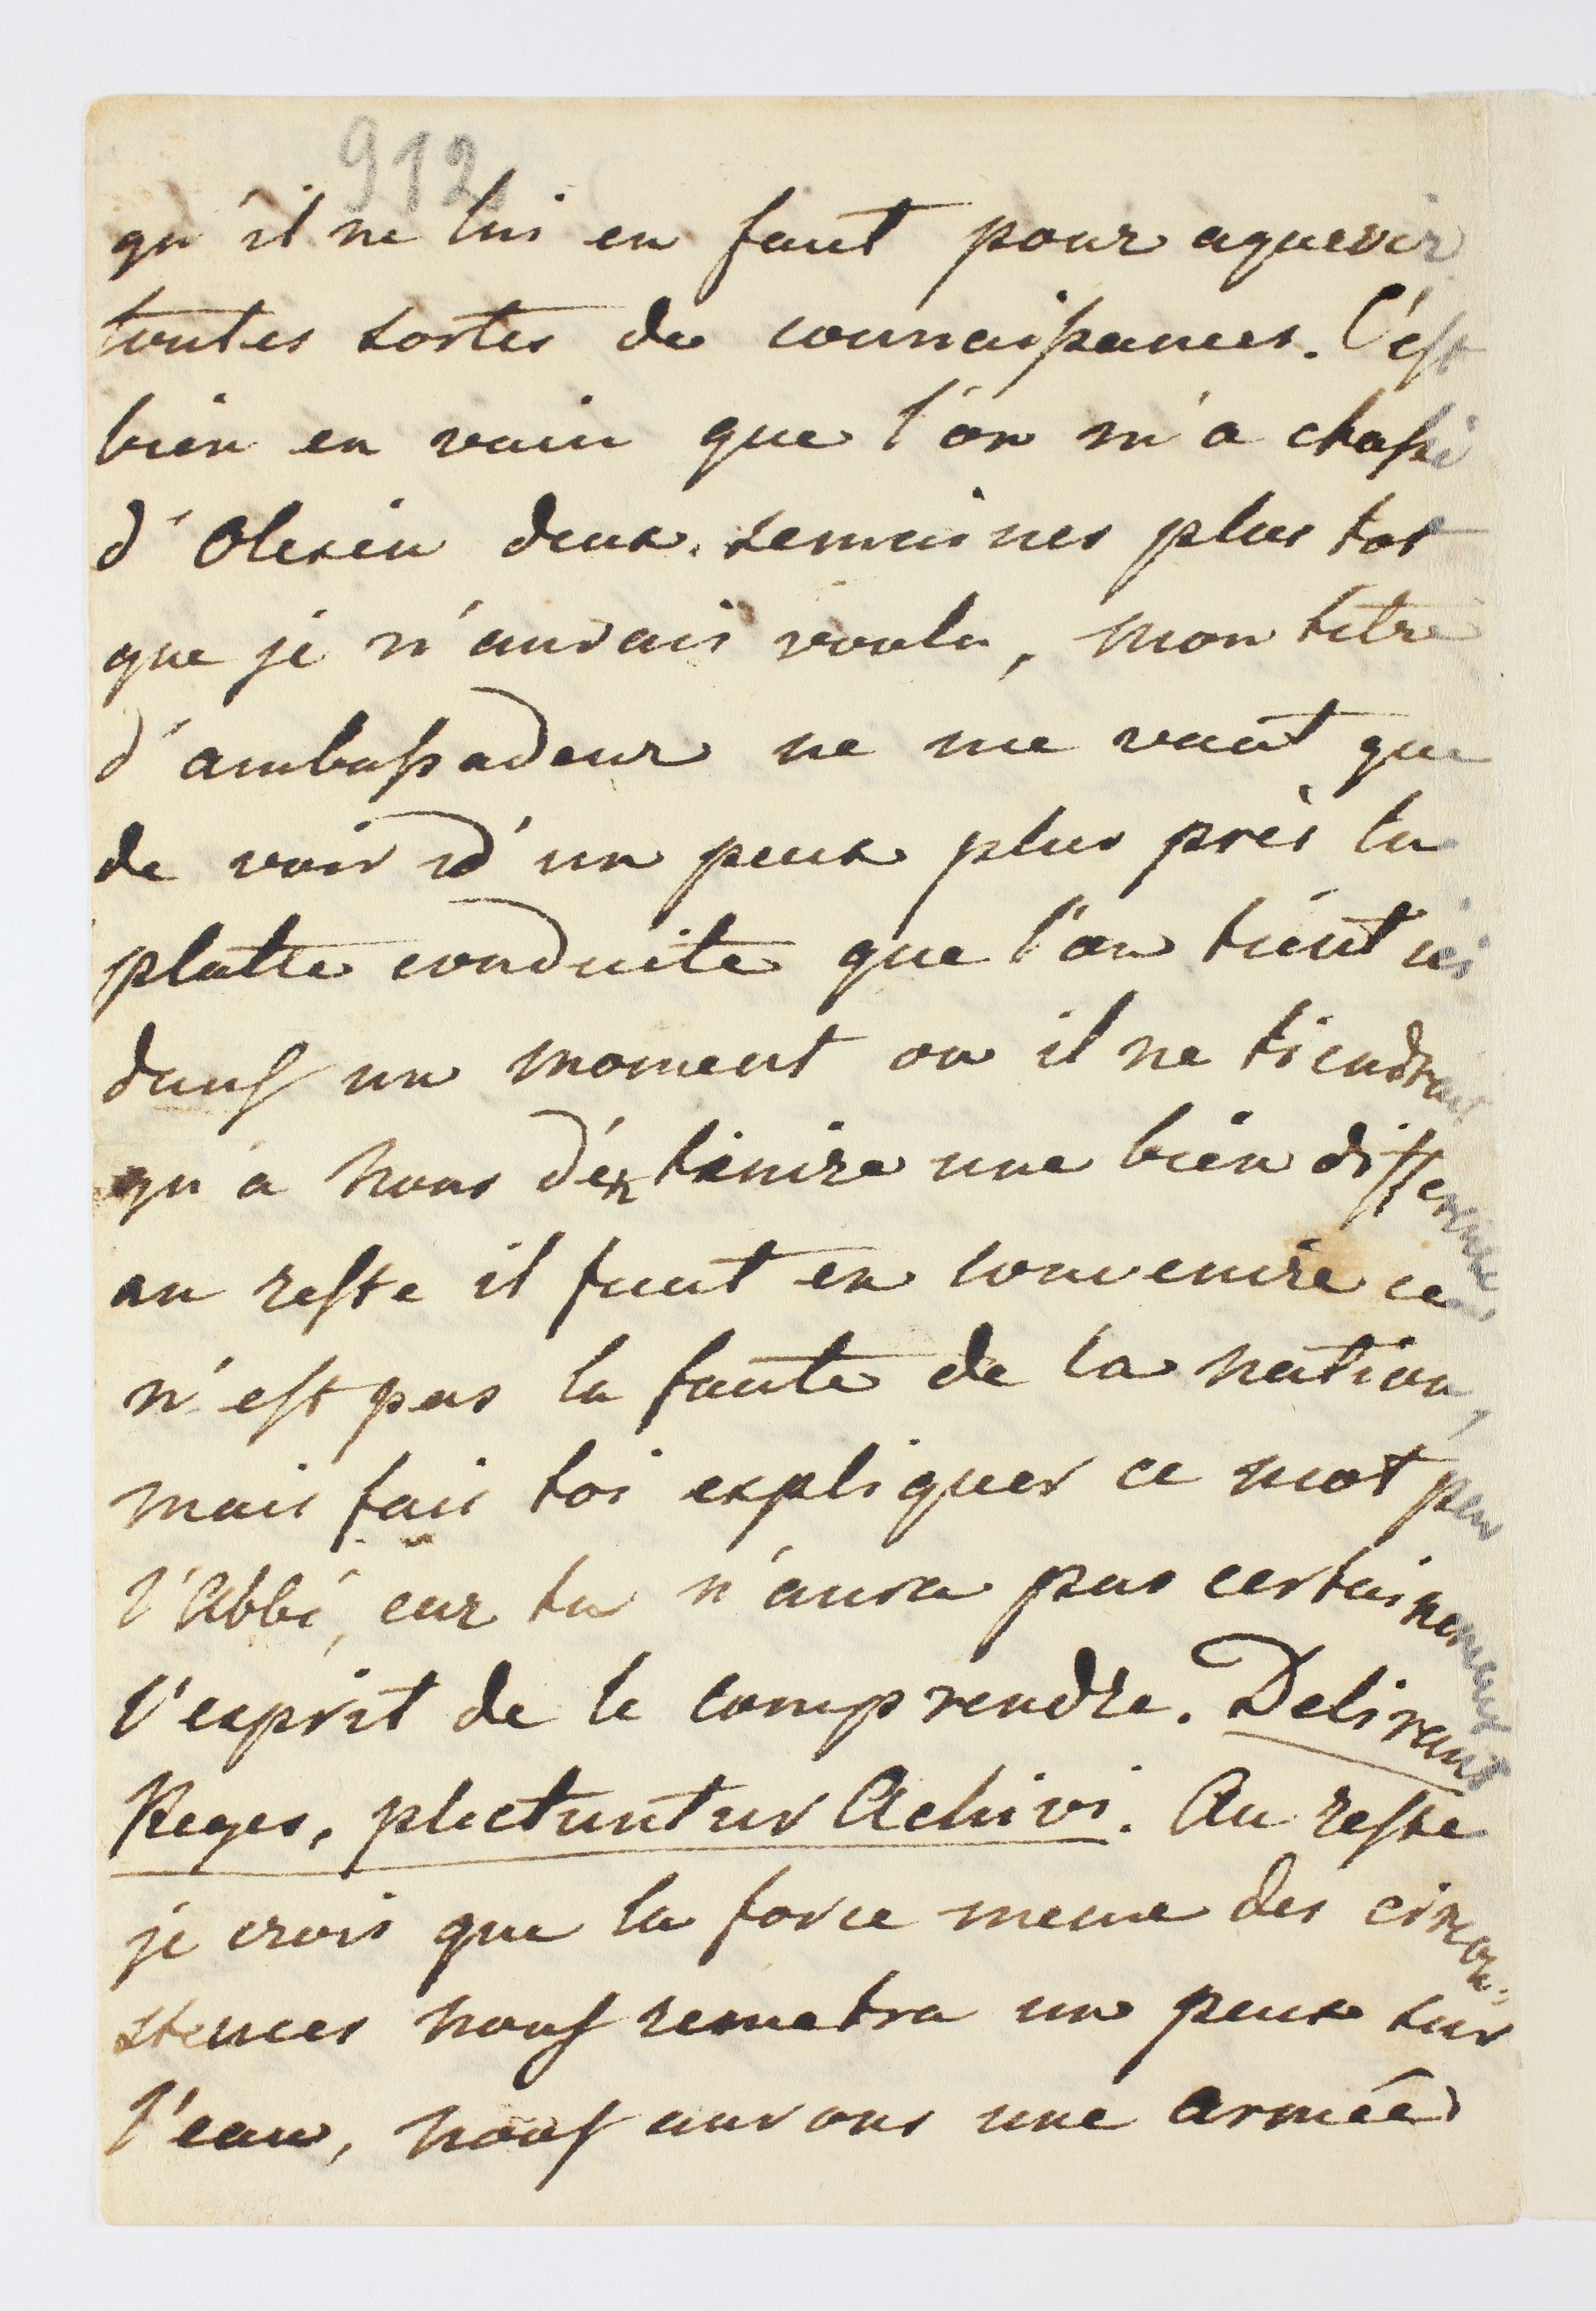 912
qu'il ne lui en faut pour aquerir
toutes sortes de connaissances. C'est
bien en vain que l'on m'a chassé
d'Olesin deux semaines plus tot
que je n'aurais voulu, mon titre
d'ambassadeur ne me vaut que
de voir d'un peux plus près la
platte conduite que l'on tient ici
dans un moment ou il ne tiendrait
qu'a nous d'en tenire une bien differente
au reste il faut en convenire ce
n'est pas la faute de la nation,
mais fais toi expliquer ce mot par
l'Abbé, car tu n'aura pas certainement
l'esprit de le comprendre. Delirant
Reges, plectuntur Achivi. Au reste
je crois que la force meme des circon-
stences nous remetra un peux sur
l'eau, nous aurons une armée